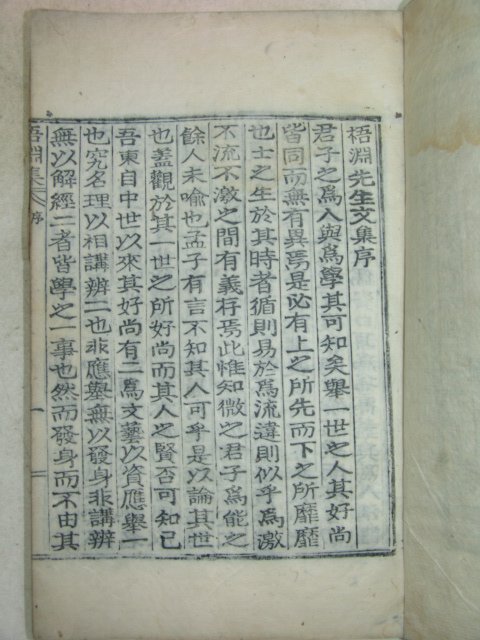 梧淵先生文集序
君子之爲人與爲學其可知矣舉一世之人其好尚
皆同而無有異焉是必有上之所先而下之所靡靡
也士之生於其時者循則易於爲流違則似乎爲激
不流不激之間有義存焉此惟知微之君子爲能之
餘人未喻也孟子有言不知其人可乎是以論其世
也盖觀於其一世之所好尚而其人之賢否可知已
吾東自中世以來其好尚有二爲文藝以資應舉一
也究名理以相講辨二也非應舉無以發身非講辨
無以解經二者皆學之一事也然而發身而不由其
梧淵集 序 一